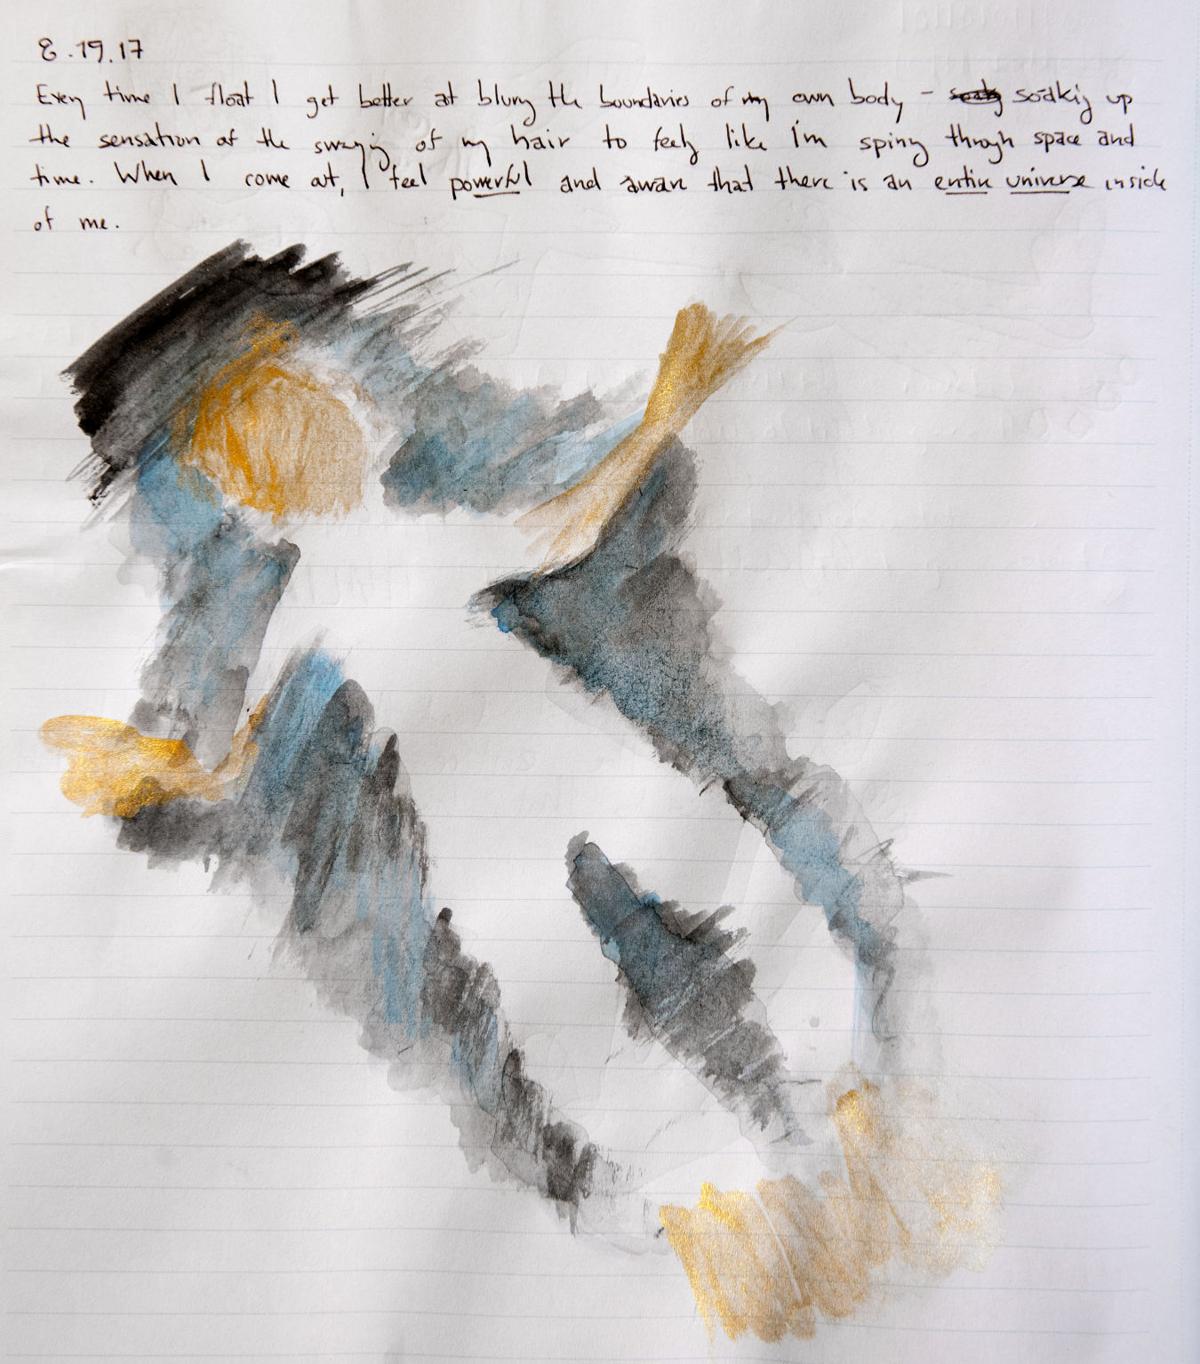 8.19.17
Every time I float I get better at blurring the boundaries of my own body - soaking up
the sensation of the swaying of my hair to feeling like I'm spinning through space and
time. When I come out, I feel powerful and aware that there is an entire universe inside
of me.